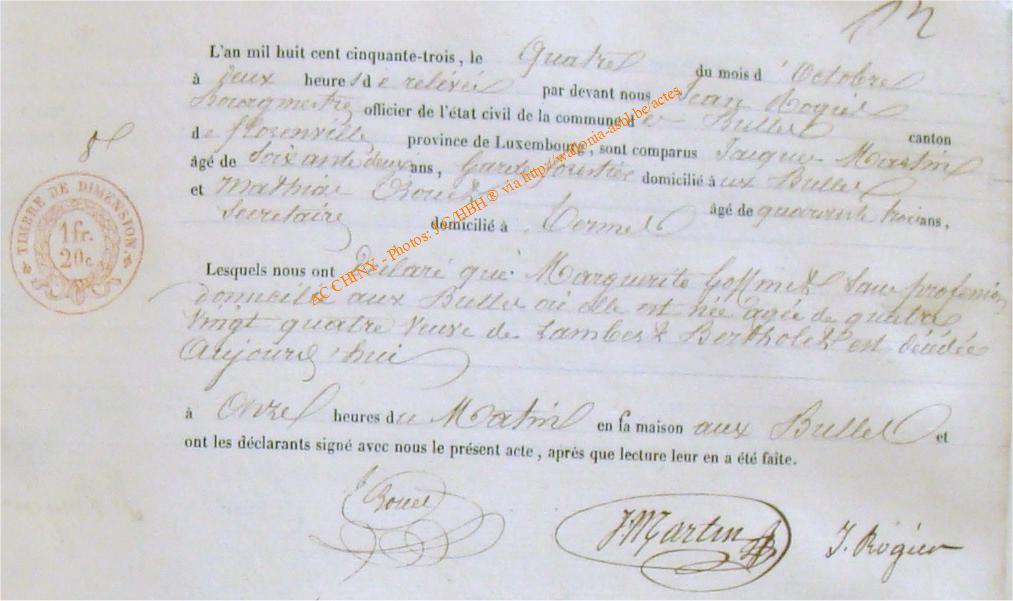 L'an mil huit cent cinquante-trois, le Quatre du mois d'Octobre
à Deux heures de relevée par devant nous Jean Rogier
Bourgmestre officier de l'état civil de la commune de Bulles canton
de florenville province de Luxembourg, sont comparus Jacques Martin
âgé de Soixante deux ans, Garde forestier domicilié aux Bulles
et Mathias âgé de quarante trois ans,
Secretaire domicilié à Termes
Lesquels nous ont Déclaré que Marguerite Goffinet Sans profession
domiciliée aux Bulles où elle est née agée de quatre
Vingt quatre Veuve de Lambert Bertholet est décédée
Aujourd'hui
à Onze heures du Matin en sa maison aux Bulles et
ont les déclarants signé avec nous le présent acte, après que lecture leur en a été faite.
JMartin J. Rogier
TIMBRE DE DIMENSION
1 fr.
20 c.
AC CHINY - Photos: JG/HBH® via http://wallonia-asbl.be/actes